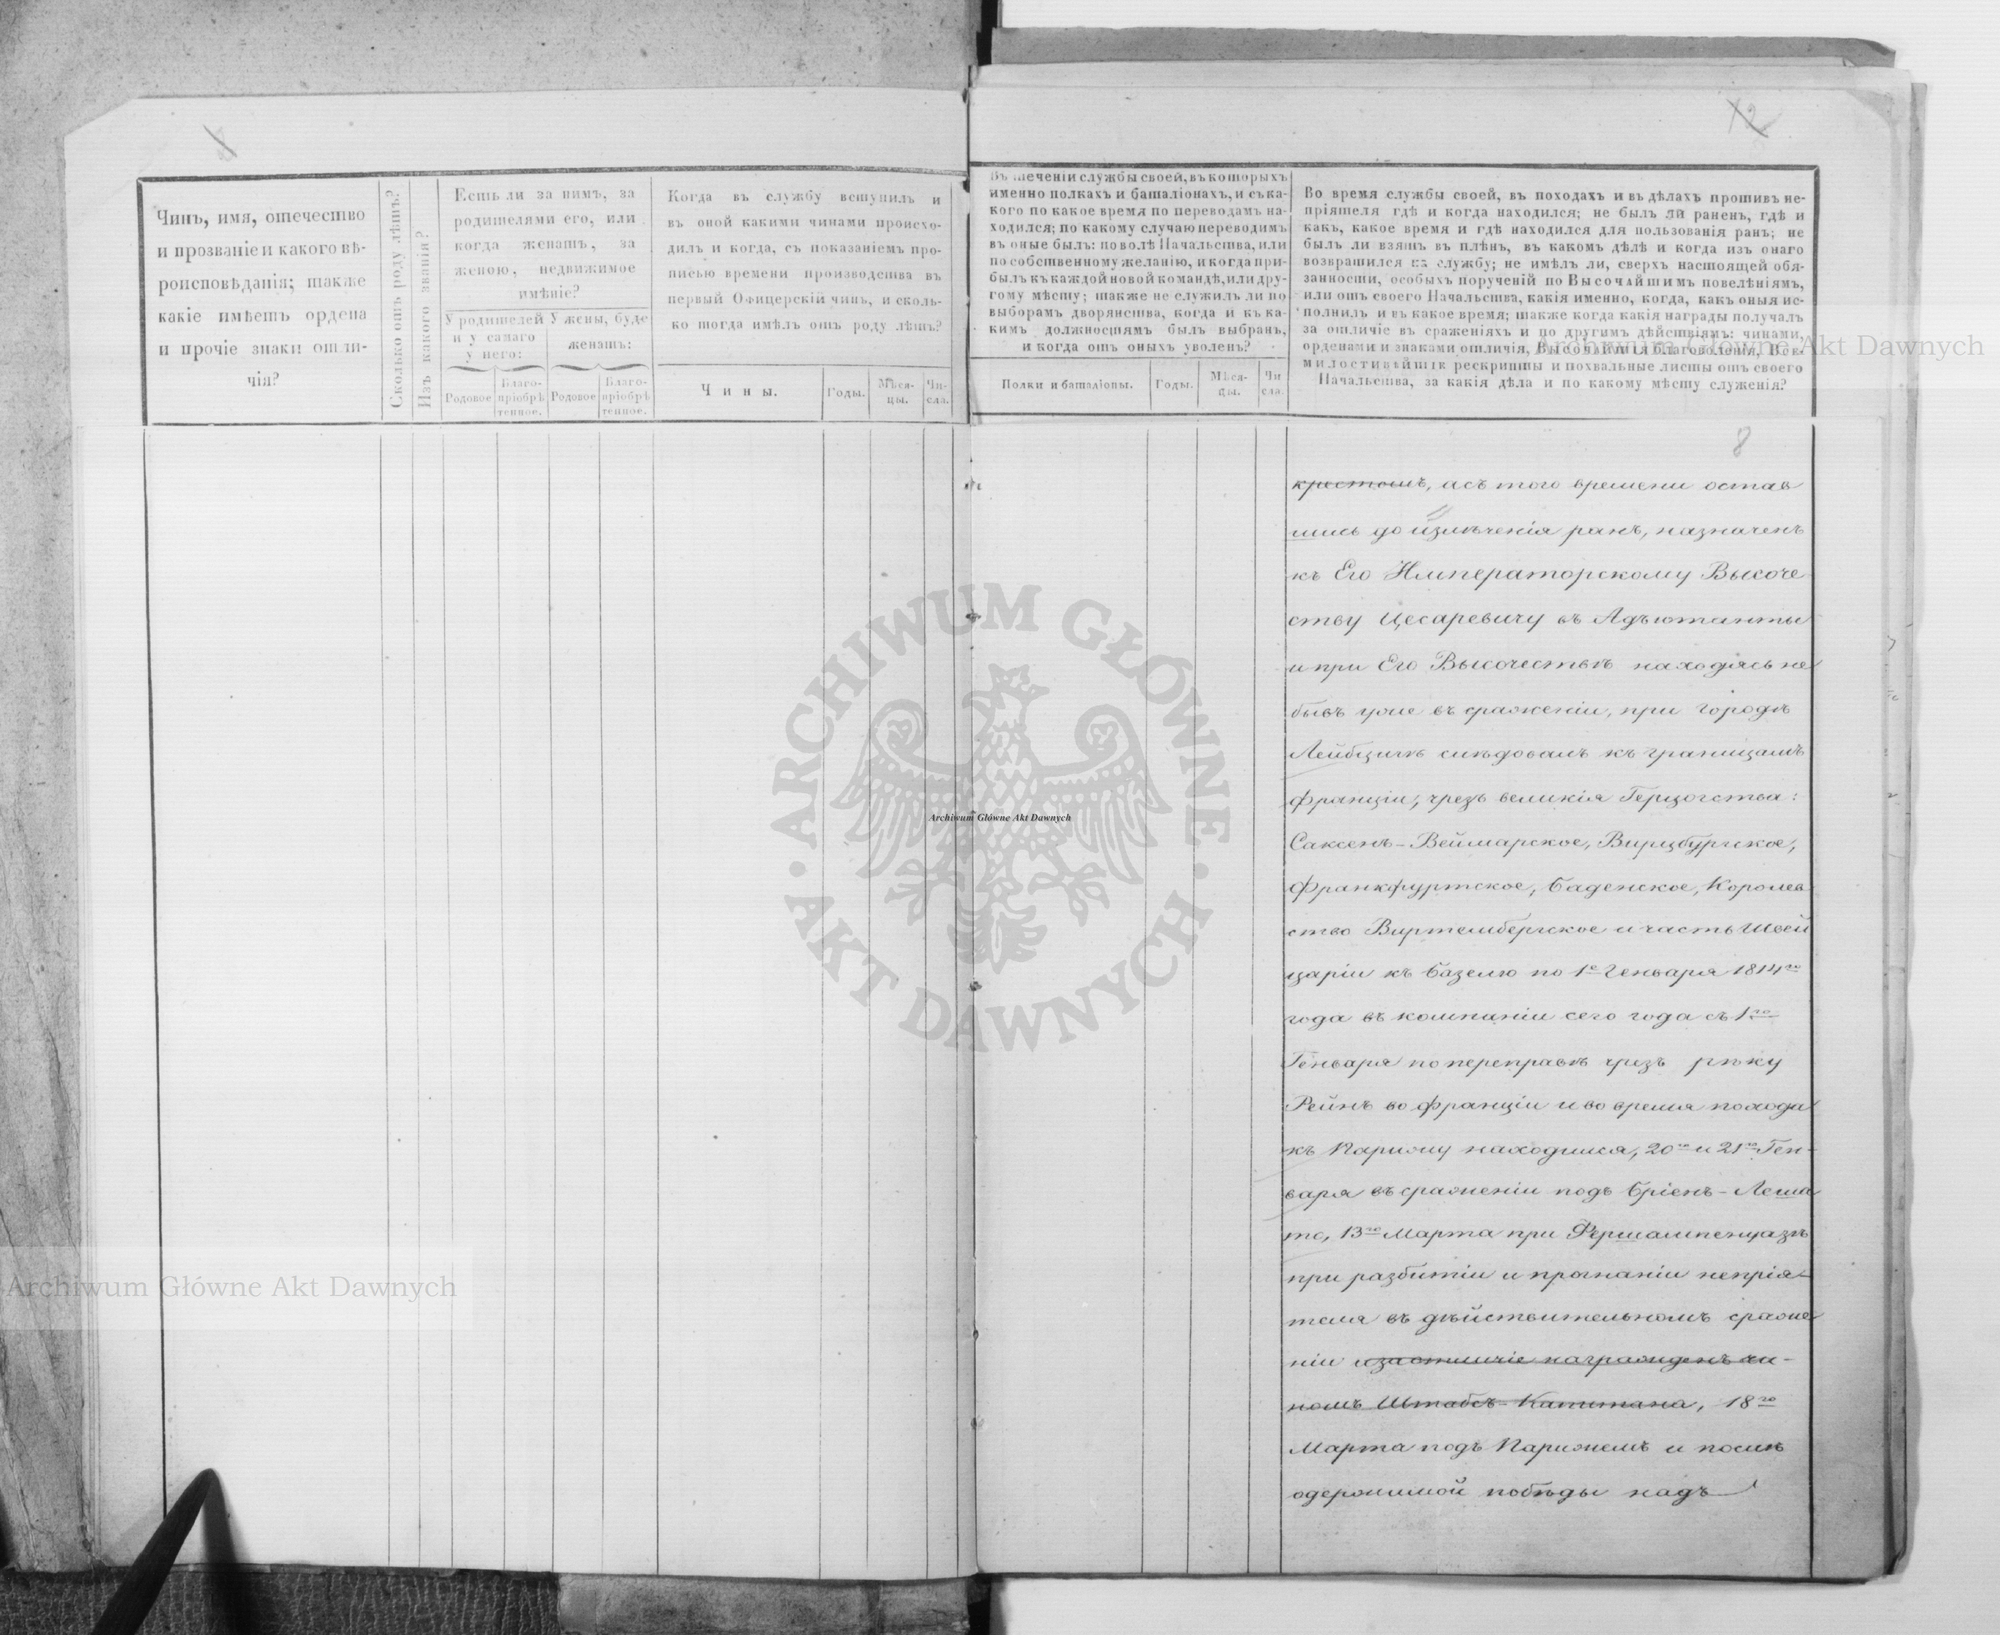 Чинъ, имя, отечество
и прозваніе и какого вѣ-
роисповѣданія; также
какіе имѣетъ ордена
и прочіе знаки отли-
чія?
Сколько отъ роду лѣтъ?
Изъ какого званія?
Есть ли за нимъ, за
родителями его, или
когда женатъ, за
женою, недвижимое
имѣніе?
У родителей
и у самаго
у него:
У жены, буде
женатъ:
Родовое
Благо-
пріобрѣ
тенное.
Родовое
Благо-
пріобрѣ
тенное.
Когда въ службу вступилъ и
въ оной какими чинами происхо-
дилъ и когда, съ показаніемъ про-
писью времени производства въ
первый Офицерскій чинъ, и сколь-
ко тогда имѣлъ отъ роду лѣтъ?
Чины.
Годы.
Мѣся-
цы.
Чи-
сла.
Въ теченіи службы своей, въ которыхъ
именно полкахъ и баталіонахъ, и съ ка-
кого по какое время по переводамъ на-
ходился; по какому случаю переводимъ
въ оные былъ: по волѣ Начальства, или
по собственному желанію, и когда при-
былъ къ каждой новой командѣ, или дру-
гому мѣсту; также не служилъ ли по
выборамъ дворянства, когда и къ ка-
кимъ должностямъ былъ выбранъ,
и когда отъ оныхъ уволенъ?
Полки и баталіоны.
Годы.
Мѣся-
цы.
Чи
сла.
Во время службы своей, въ походахъ и въ дѣлахъ противъ не-
пріятеля гдѣ и когда находился; не былъ ли раненъ, гдѣ и
какъ, какое время и гдѣ находился для пользованія ранъ; не
былъ ли взятъ въ плѣнъ, въ какомъ дѣлѣ и когда изъ онаго
возвратился на службу; не имѣлъ ли, сверхъ настоящей обя-
занности, особыхъ порученій по Высочайшимъ повелѣніямъ,
или отъ своего Начальства, какія именно, когда, какъ оныя ис-
полнилъ и въ какое время; также когда какія награды получалъ
за отличіе въ сраженіяхъ и по другимъ дѣйствіямъ: чинами,
орденами и знаками отличія, Высочайшія благоволенія, Все-
милостивѣйшіе рескрипты и похвальные листы отъ своего
Начальства, за какія дѣла и по какому мѣсту служенія?
8
крестомъ, а съ того времени остав
шись до излѣченія ранъ, назначенъ
къ Его Императорскому Высоче
ству Цесаревичу въ Адъютанты
и при Его Высочествѣ находясь не
бывъ уже въ сраженіи, при городѣ
Лейбцигѣ слѣдовалъ къ границамъ
Франціи, чрезъ великія Герцогства:
Саксенъ-Веймарское, Вирцбургское,
Франкфуртское, Баденское, Королев
ство Виртембергское и часть Швей
царіи къ Базелю по 1е Генваря 1814го
года въ компаніи сего года съ 1го
Генваря по переправѣ чрезъ рѣку
Рейнъ во Франціи и во время похода
къ Парижу находился, 20го и 21го Ген-
варя въ сраженіи подъ Бріенъ-Леша
то, 13го Марта при Фершампенуазъ
при разбитіи и прогнаніи непрія-
теля въ дѣйствительномъ сраже
ніи и за отличіе награжденъ чи-
номъ Штабсъ-Капитана, 18го
Марта подъ Парижемъ и послѣ
одержимой побѣды надъ
ARCHIWUM GŁÓWNE AKT DAWNYCH
Archiwum Główne Akt Dawnych
Archiwum Główne Akt Dawnych
Archiwum Główne Akt Dawnych